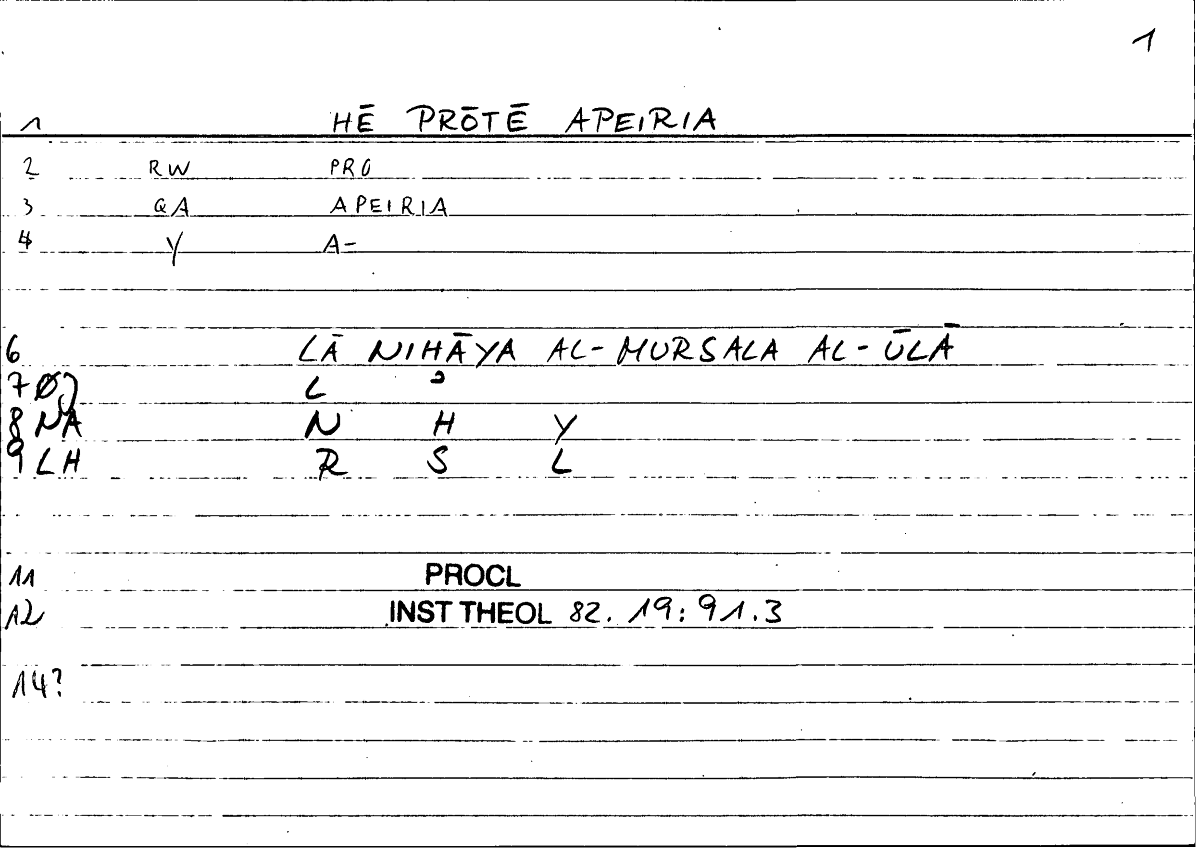 1
1 HĒ PRŌTĒ APEIRIA
2 RW PRO
3 QA APEIRIA
4 Y A-
6 LĀ NIHĀYA AL-MURSALA AL-ŪLĀ
7 Ø) L ʾ
8 NA N H Y
9 LH R S L
11 PROCL
12 INST THEOL 82. 19: 91.3
14?